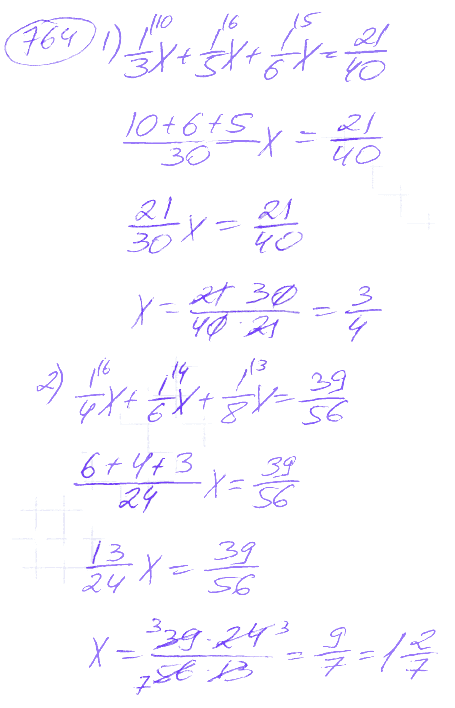 764 1) 1/3^{\10} x + 1/5^{\6} x + 1/6^{\5} x = 21/40
(10 + 6 + 5)/30 x = 21/40
21/30 x = 21/40
x = (21 · 30)/(40 · 21) = 3/4
2) 1/4^{\6} x + 1/6^{\4} x + 1/8^{\3} x = 39/56
(6 + 4 + 3)/24 x = 39/56
13/24 x = 39/56
x = (³39 · 24³)/(₇56 · 13) = 9/7 = 1 2/7